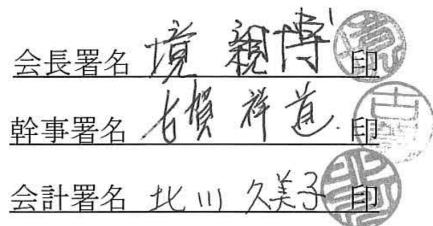 会長署名 境 親博 印
幹事署名 古賀 祥道 印
会計署名 北川 久美子 印